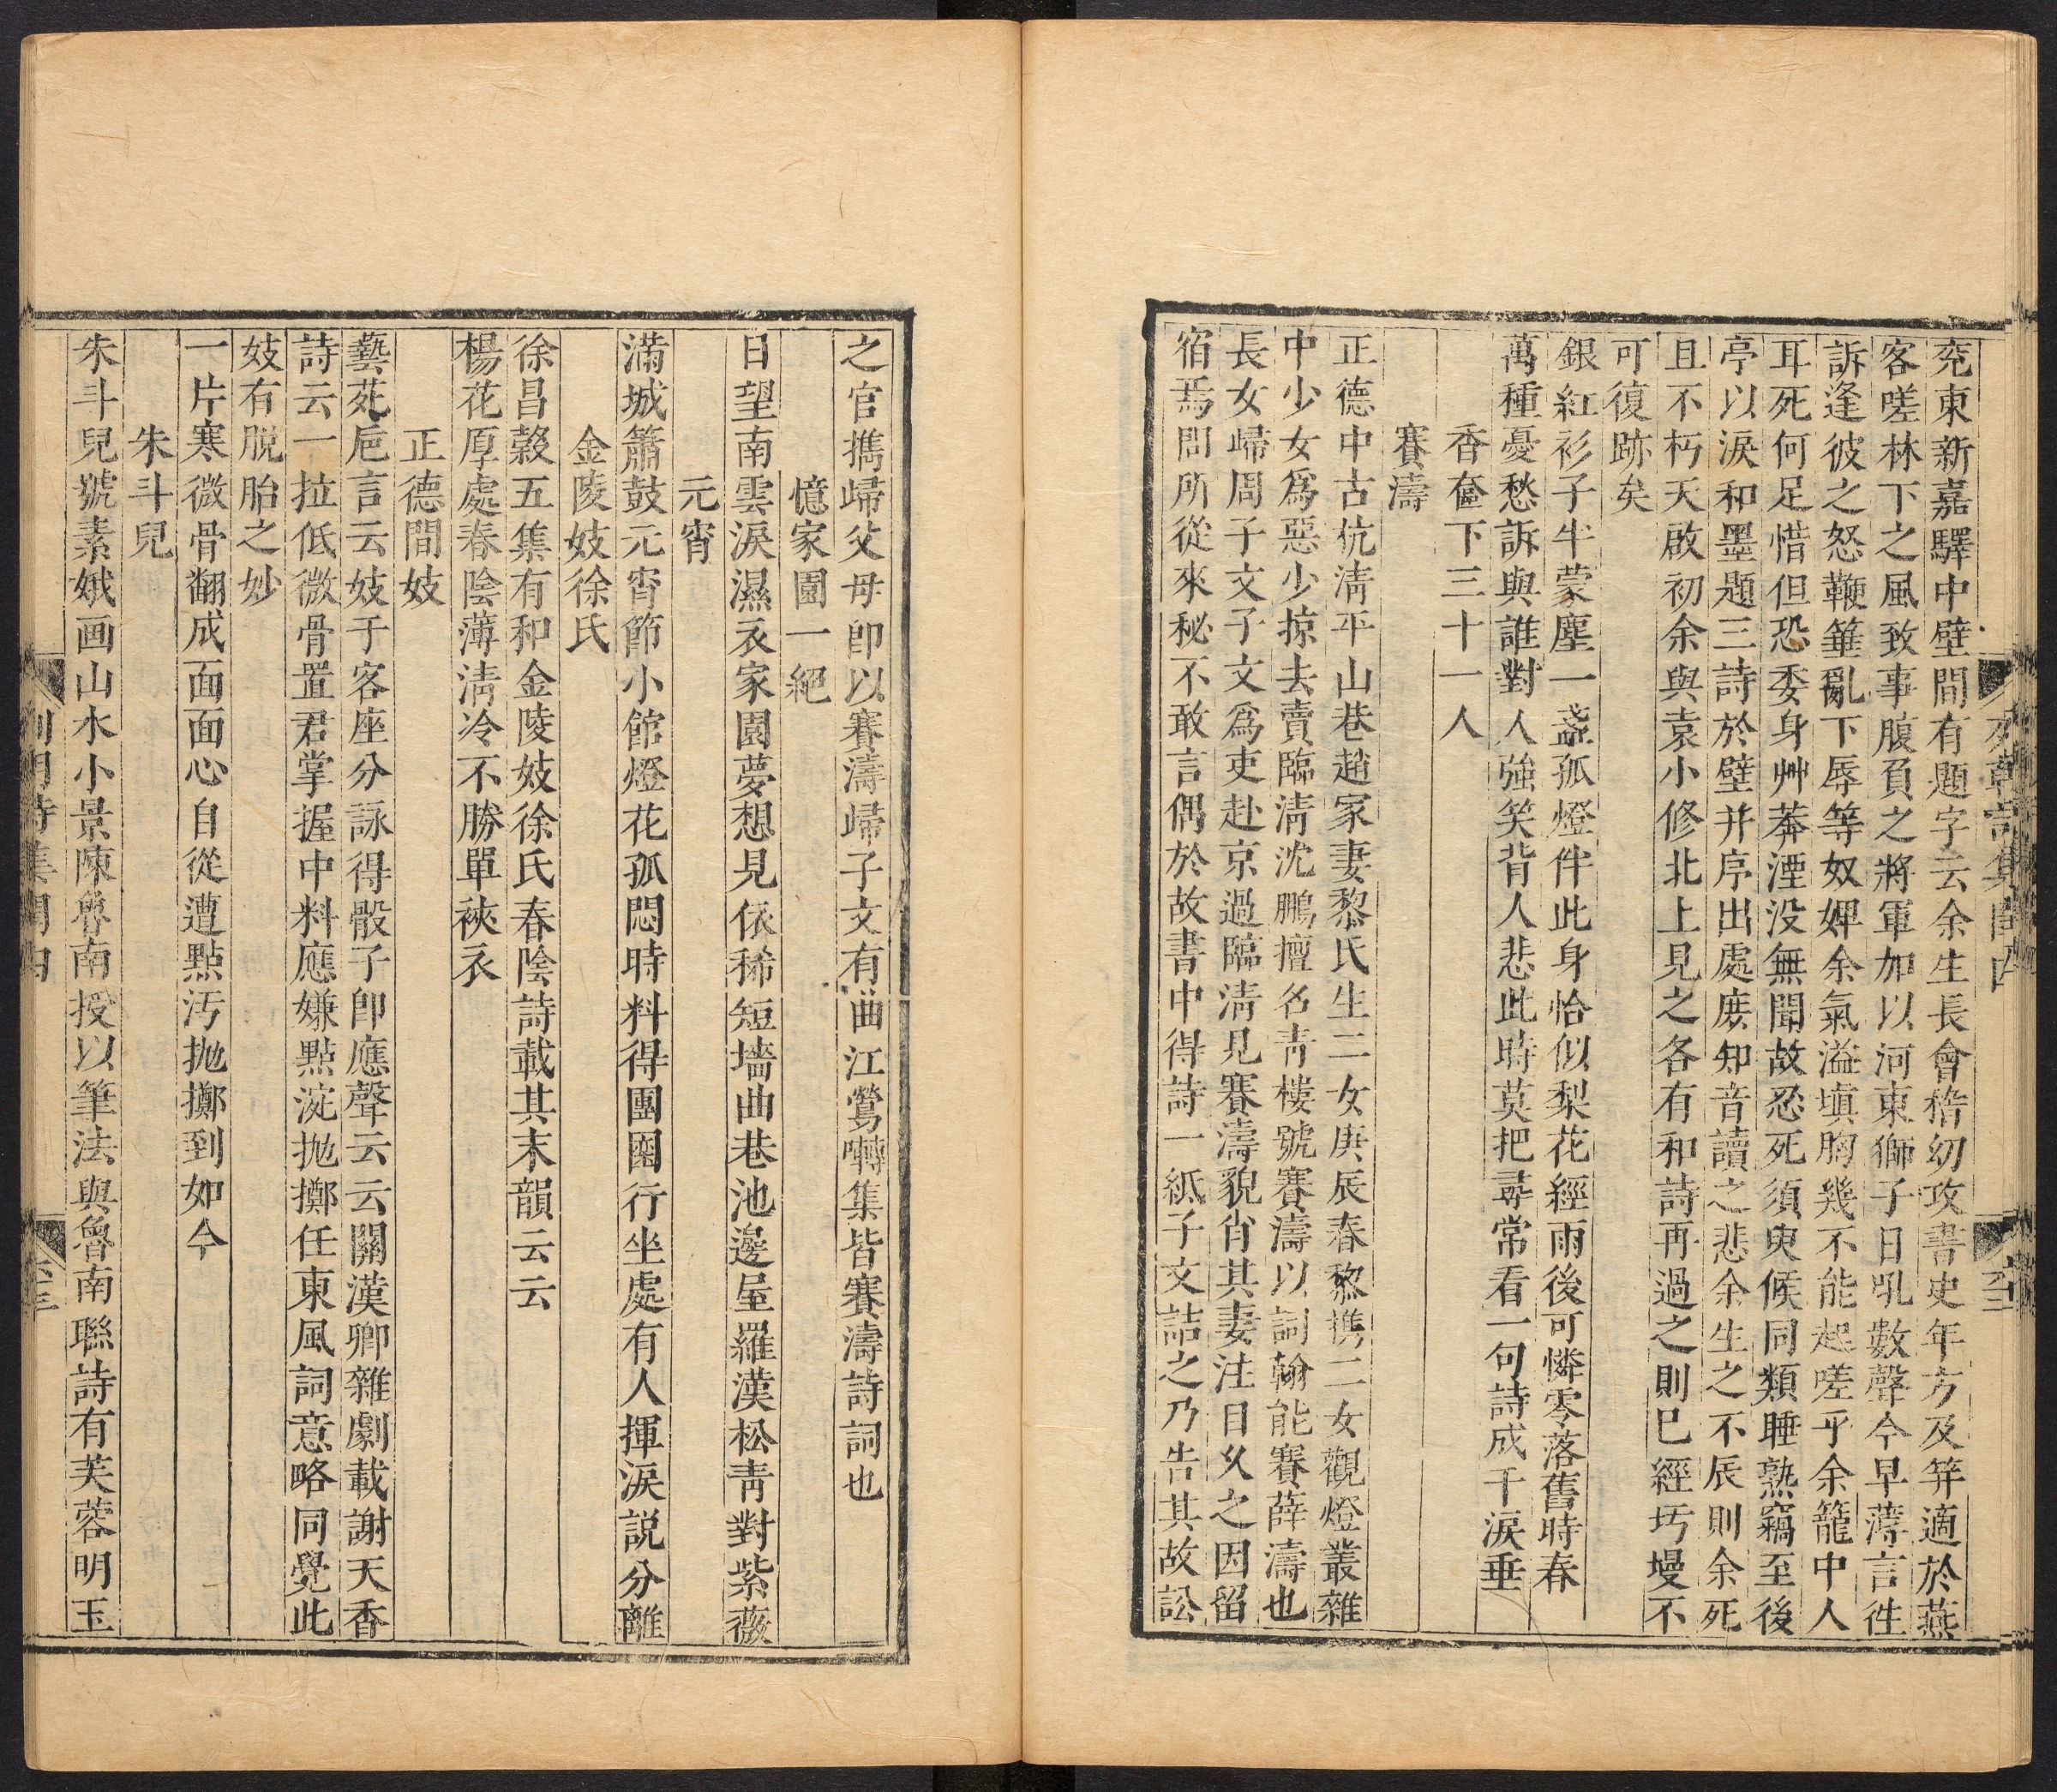 列朝詩集閏四
兖東新嘉驛中壁間有題字云余生長會稽幼攻書史年方及笄適於燕
客嗟林下之風致事腹負之將軍加以河東獅子日吼數聲今早薄言徃
訴逢彼之怒鞭箠亂下辱等奴婢余氣溢塡胸幾不能起嗟乎余籠中人
耳死何足惜但恐委身艸莽湮没無聞故忍死須臾候同類睡熟竊至後
亭以淚和墨題三詩於壁幷序出處庻知音讀之悲余生之不辰則余死
且不朽天啟初余與袁小修北上見之各有和詩再過之則巳經圬墁不
可復跡矣
銀紅衫子半蒙塵一盞孤燈伴此身恰似梨花經雨後可憐零落舊時春
萬種憂愁訴與誰對人強笑背人悲此時莫把尋常看一句詩成千淚垂
香奩下三十一人
賽濤
正德中古杭淸平山巷趙家妻黎氏生二女庚辰春黎携二女觀燈叢雜
中少女爲惡少掠去賣臨淸沈鵬擅名靑樓號賽濤以詞翰能賽薛濤也
長女歸周子文子文爲吏赴京過臨淸見賽濤貌肖其妻注目乆之因留
宿焉問所從來秘不敢言偶於故書中得詩一紙子文詰之乃告其故訟
之官攜歸父母卽以賽濤歸子文有曲江鶯囀集皆賽濤詩詞也
憶家園一絕
日望南雲淚濕衣家園夢想見依稀短墻曲巷池邊屋羅漢松靑對紫薇
元宵
滿城簫鼓元宵節小館燈花孤悶時料得團圞行坐處有人揮淚説分離
金陵妓徐氏
徐昌榖五集有和金陵妓徐氏春陰詩載其末韻云云
楊花厚處春陰薄淸冷不勝單裌衣
正德間妓
藝苑巵言云妓于客座分詠得骰子卽應聲云云關漢卿雜劇載謝天香
詩云一拉低微骨置君掌握中料應嫌點涴抛擲任東風詞意略同覺此
妓有脱胎之妙
一片寒微骨翻成面面心自從遭點汚抛擲到如今
朱斗兒
朱斗兒號素娥画山水小景陳魯南授以筆法與魯南聯詩有芙蓉明玉
列朝詩集閏四